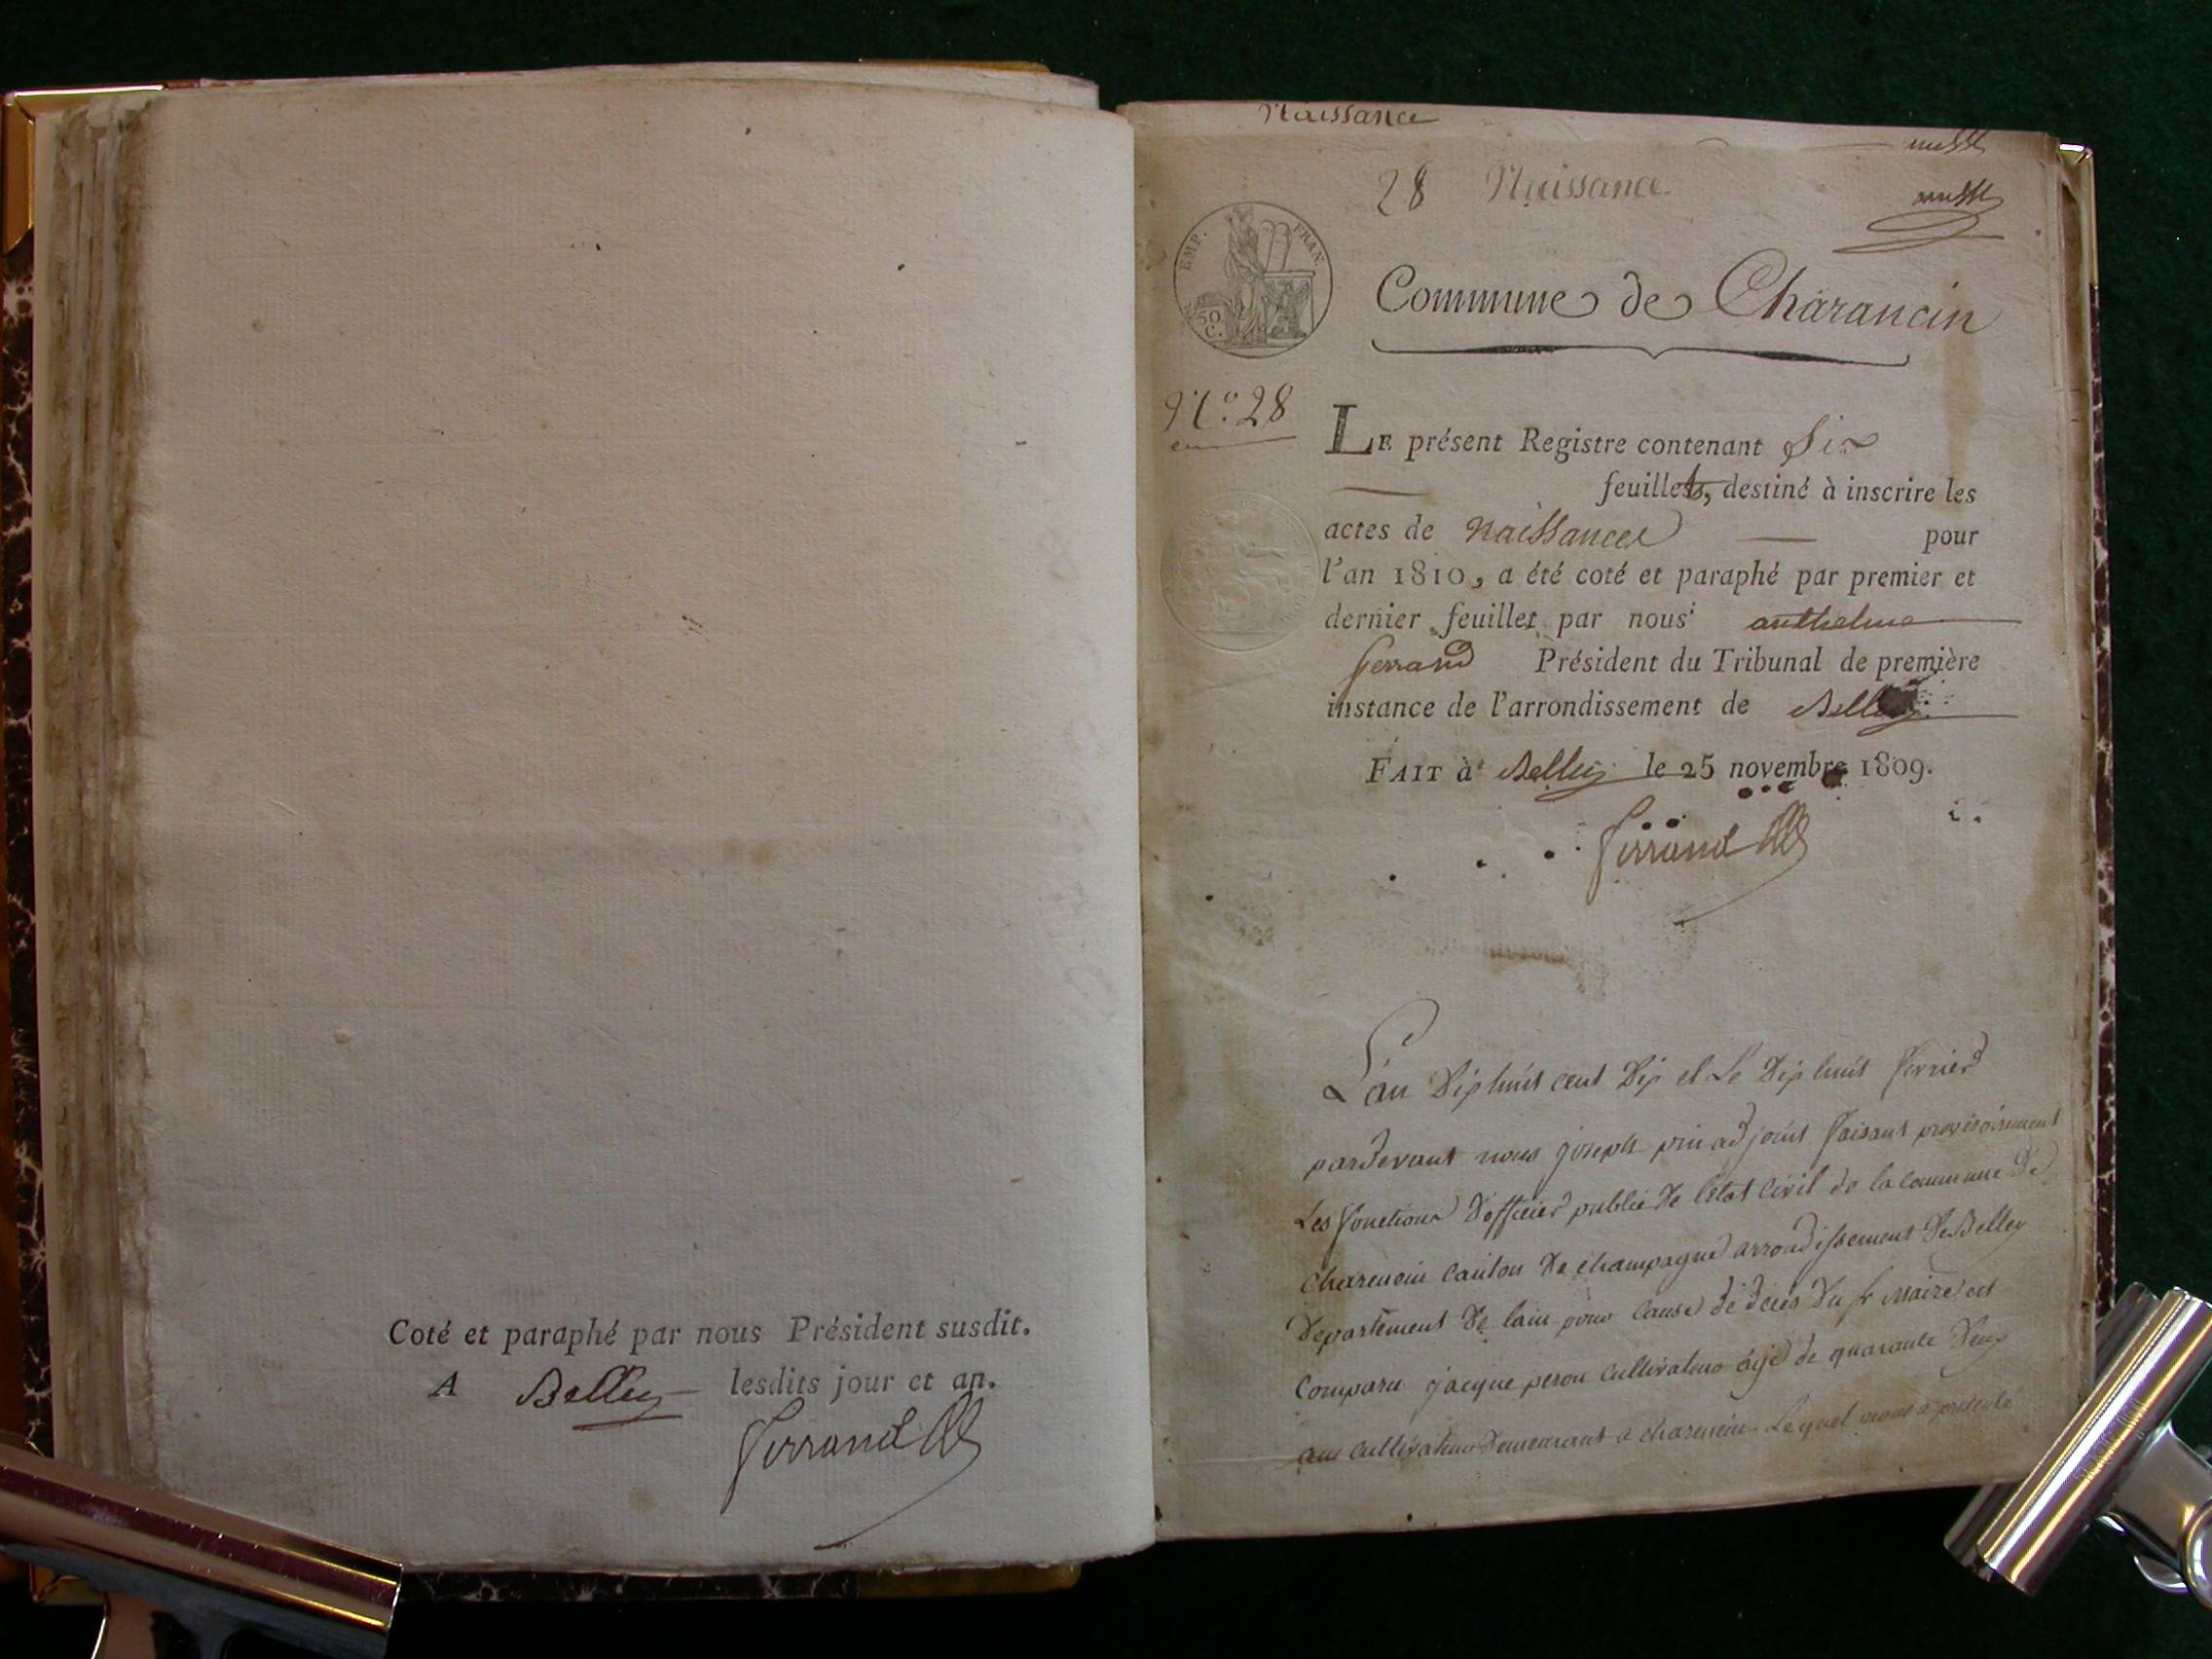 Coté et paraphé par nous Président susdit.
A Belley lesdits jour et an.
Ferrand
Naissance
28 Naissance
EMP. FRAN.
50 C.
Commune de Charancin
N.º 28
LE présent Registre contenant Six
feuillets, destiné à inscrire les
actes de naissances pour
l'an 1810, a été coté et paraphé par premier et
dernier feuillet par nous anthelme
ferrand Président du Tribunal de première
instance de l'arrondissement de Belley
FAIT à Belley le 25 novembre 1809.
Ferrand
L'an Dix huit cent Dix et Le Dix huit fevrier
pardevant nous joseph adjoint faisant provisoirement
Les fonctions D'officier public De letat Civil de la commune De
charencin canton De champagne arrondissement De Belley
Departement De lain pour cause de décés Du sr Maire est
Comparu jacque peron Cultivateur âgé de quarante Deux
ans cultivateur Demeurant a charencin Lequel nous a présenté